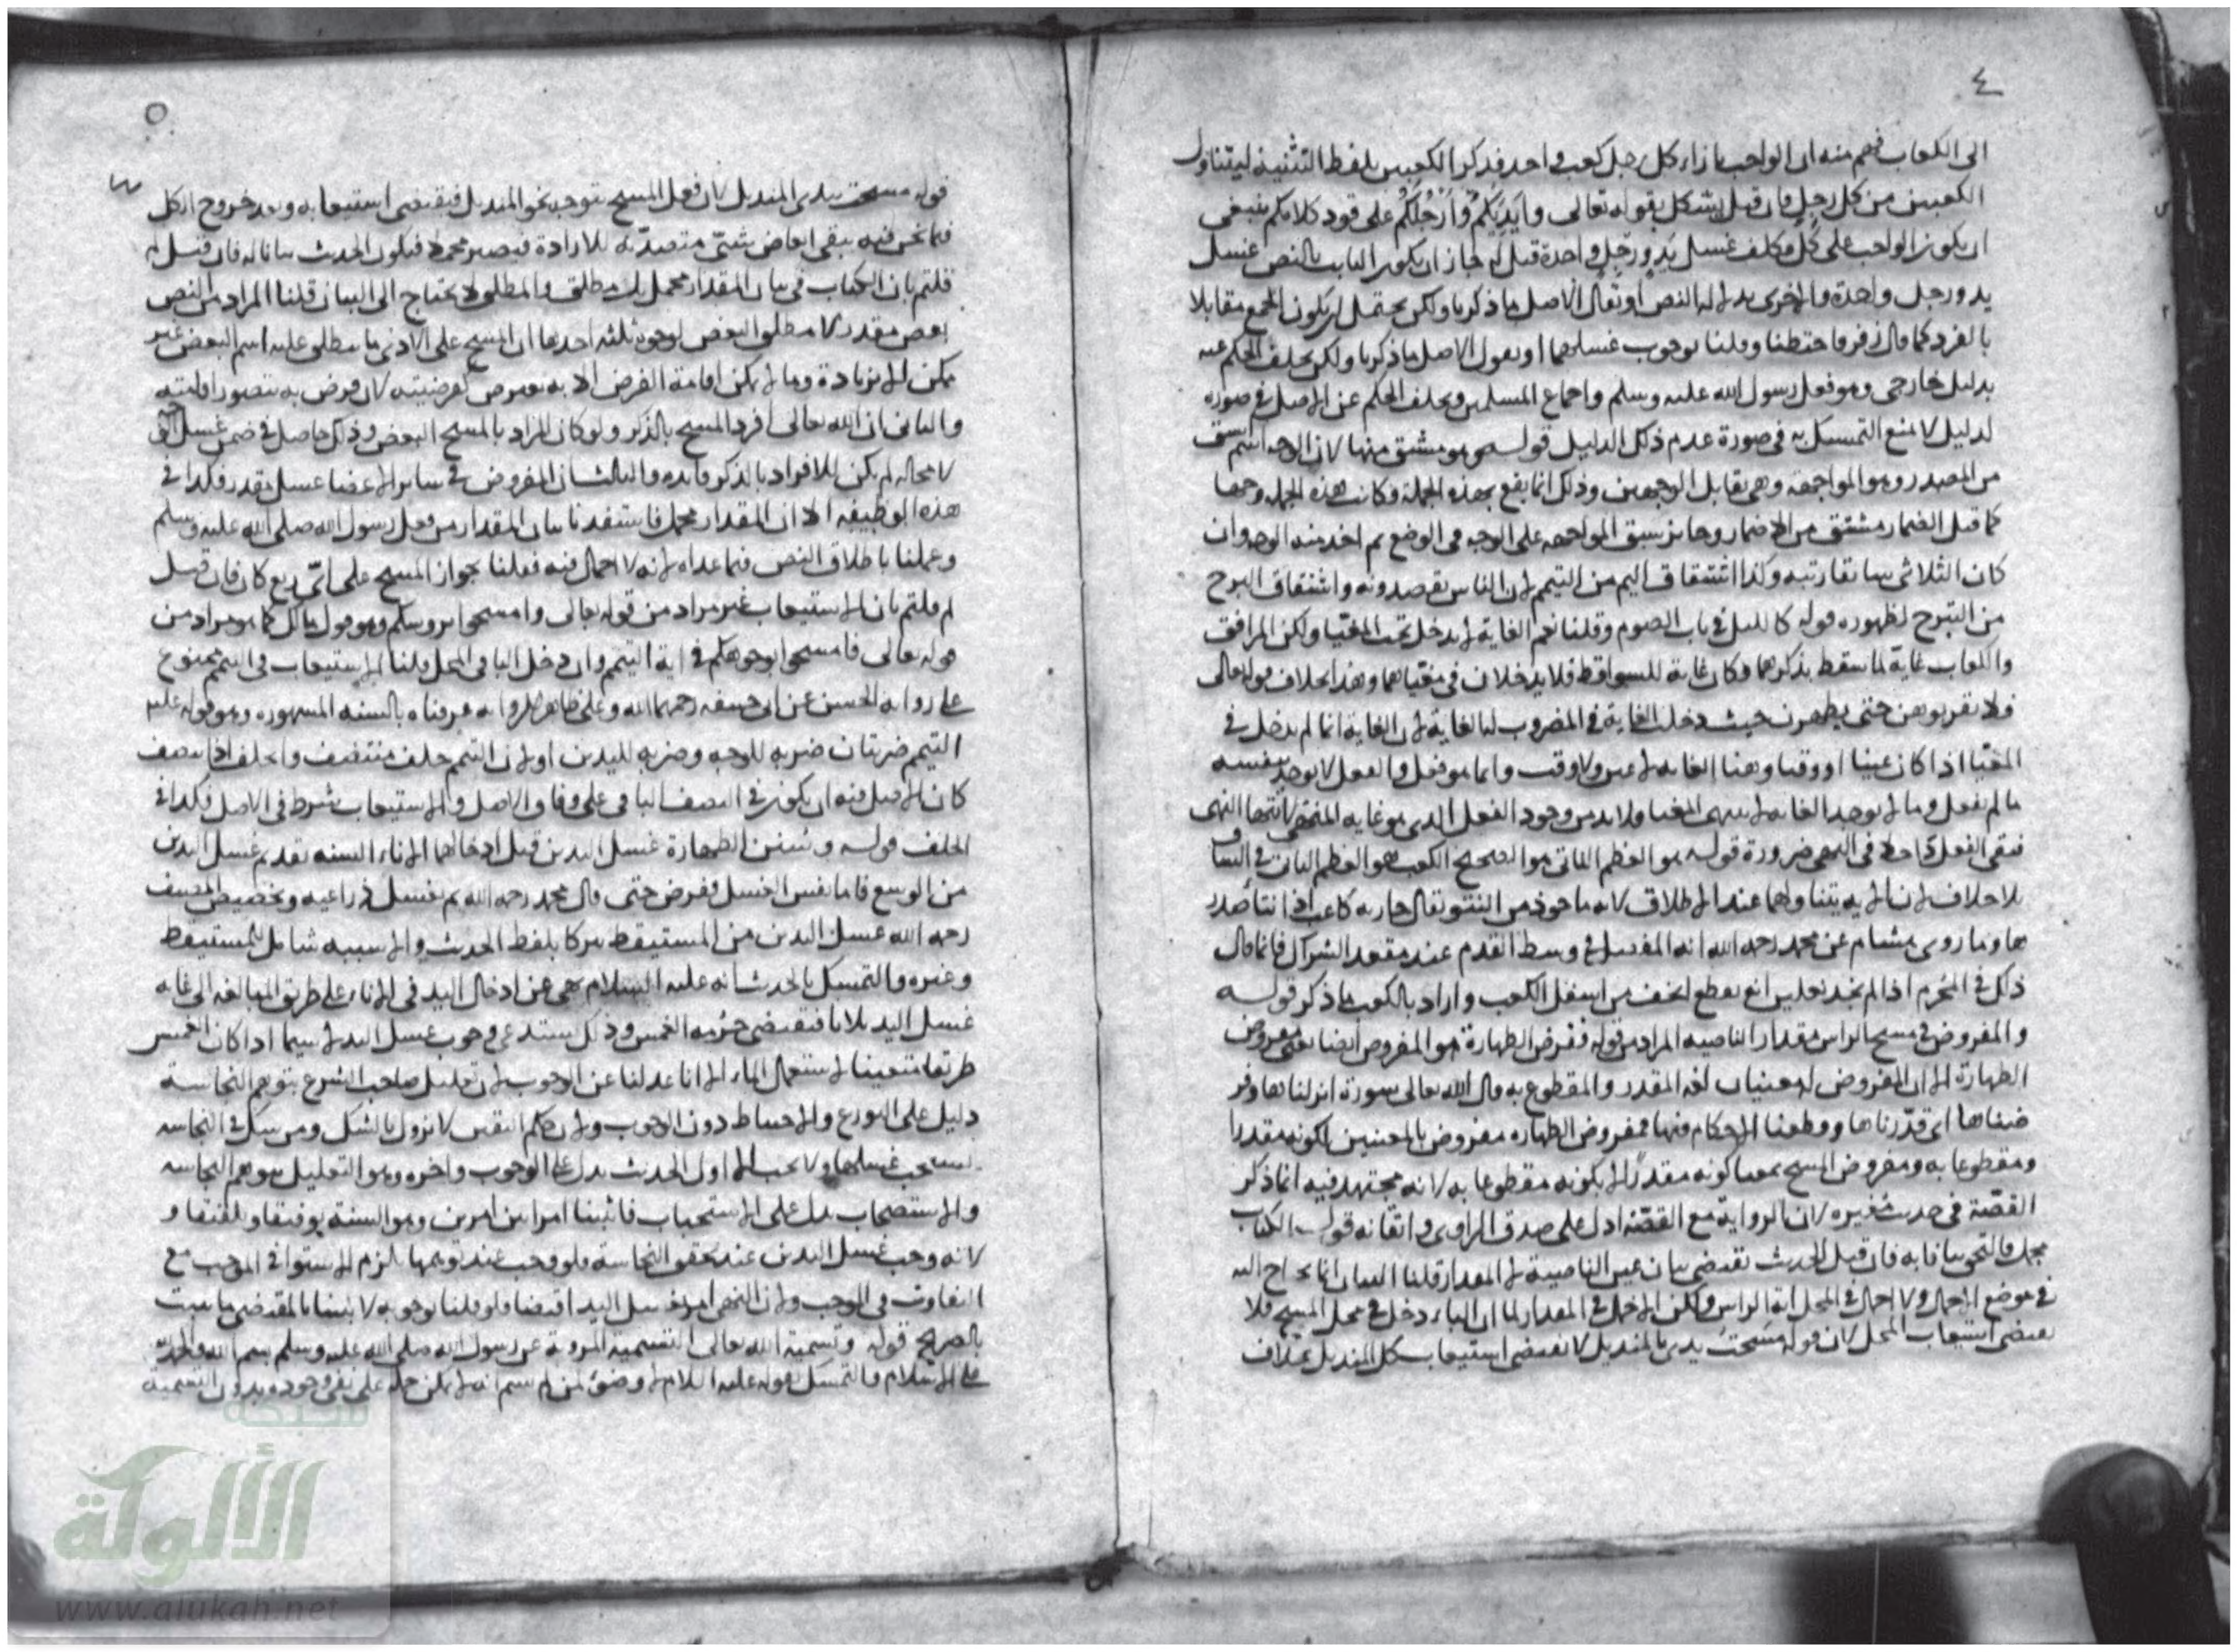 ٤
الى الكعاب فهم منه ان الواجب بازاء كل رجل كعب واحد فذكر الكعبين بلفظ التثنية ليتناول
الكعبين من كل رجل فان قيل يشكل بقوله تعالى وايديكم وارجلكم على قود كلامكم ينبغي
ان يكون الواجب على كل مكلف غسل يد ورجل واحدة قيل له جاز ان يكون الثابت بالنص غسل
يد ورجل واحدة والاخرى بدلالة النص او نقول الاصل ما ذكرنا ولكن يحتمل ان يكون الجمع مقابلا
بالفرد كما قال زفر فاحتطنا وقلنا بوجوب غسلهما او نقول الاصل ما ذكرنا ولكن يخلف الحكم عنه
بدليل خارجي وهو فعل رسول الله عليه وسلم واجماع المسلمين وتخلف الحكم عن الاصل في صورة
لدليل لا يمنع التمسك به في صورة عدم ذلك الدليل قوله هو مشتق منها لان الوجه اسم يشتق
من المصدر وهو المواجهة وهي تقابل الوجهين وذلك انما يقع بهذه الجملة وكانت هذه الجملة وجها
كما قيل الضمار مشتق من الاضمار وجائز سبق المواجهة على الوجه في الوضع ثم اخذ منه الوجه وان
كان الثلاثي سابقا رتبة وكذا اشتقاق اليم من التيمم لان الناس يقصدونه واشتقاق البرج
من التبرج لظهوره قوله كالليل في باب الصوم وقلنا نعم الغاية لا يدخل تحت المغيا ولكن المرافق
والكعاب غاية لما سقط بذكرهما وكان غاية للسواقط فلا يدخلان في مغياهما وهذا بخلاف قوله تعالى
فلا تقربوهن حتى يطهرن حيث دخلت الغاية في المضروب لها الغاية لان الغاية انما لم يدخل في
المغيا اذا كان عينا او وقتا وهنا الغاية لا عين ولا وقت وانما هو فعل والفعل لا يوجد بنفسه
ما لم يفعل وما لا يوجد الغاية لا ينتهي المغيا ولا بد من وجود الفعل الذي هو غاية المنهي لانتهاء النهي
فبقي الفعل داخلا في النهي ضرورة قوله هو العظم الناتي هو الصحيح الكعب هو العظم الناتي في الساق
بلا خلاف لان الاية يتناولهما عند الاطلاق لانه ماخوذ من النتو يقال جارية كاعب اذا نتأ صدر
ها وما روى هشام عن محمد رحمه الله انه المفصل في وسط القدم عند مقعد الشراك فانما قال
ذلك في المحرم اذا لم يجد نعلين انه يقطع الخف من اسفل الكعب واراد بالكعب ما ذكر قوله
والمفروض في مسح الراس مقدار الناصية المراد من قوله ففرض الطهارة هو المفروض ايضا يعني مفروض
الطهارة الا ان المفروض له معنيان لغة المقدر والمقطوع به قال الله تعالى سورة انزلناها وفر
ضناها اي قدرناها وقطعنا الاحكام فيها فمفروض الطهارة مفروض بالمعنيين لكونه مقدرا
ومقطوعا به ومفروض المسح بمعنا كونه مقدرا لا بكونه مقطوعا به لانه مجتهد فيه انما ذكر
القصة في حديث مغيرة لان الرواية مع القصة ادل على صدق الراوي واتقانه قوله الكتاب
مجمل فالتحق بيانا به فان قيل الحديث يقتضي بيان عين الناصية لا المقدار قلنا البيان انما يحتاج اليه
في موضع الاجمال ولا اجمال في المحل انه الراس ولكن الاجمال في المقدار لما ان الباء دخل في محل المسح فلا
يقتضي استيعاب المحل لان قوله مسحت يدي بالمنديل لا يقتضي استيعاب كل المنديل بخلاف
٥
قوله مسحت بيدي المنديل لان فعل المسح يتوجه نحو المنديل فيقتضي استيعابه وبعد خروج الكل
فيما نحن فيه يبقى ابعاض شتى متصدية للارادة فيصير مجملا فيكون الحديث بيانا له فان قيل لم
قلتم بان الكتاب في بيان المقدار مجمل بل مطلق والمطلق لا يحتاج الى البيان قلنا المراد من النص
بعض مقدر لا مطلق البعض لوجوه ثلثة احدها ان المسح على الادنى ما ينطلق عليه اسم البعض غير
ممكن الا بزيادة وما لا يمكن اقامة الفرض الا به مفروض كفرضيته
والثاني ان الله تعالى افرد المسح بالذكر ولو كان المراد بالمسح البعض وذلك حاصل في ضمن غسل
لا محالة لم يكن للافراد بالذكر فائدة والثالث ان المفروض في سائر الاعضا غسل مقدر فكذا في
هذه الوظيفة الا ان المقدار مجمل فاستفدنا بيان المقدار من فعل رسول الله صلى الله عليه وسلم
وعملنا باطلاق النص فيما عداه لانه لا اجمال فيه فقلنا بجواز المسح على اي ربع كان فان قيل
لم قلتم بان الاستيعاب غير مراد من قوله تعالى وامسحوا برؤسكم وهو قول مالك كما هو مراد من
قوله تعالى فامسحوا بوجوهكم في اية التيمم وان دخل البا في المحل قلنا الاستيعاب في التيمم ممنوع
على رواية الحسن عن ابي حنيفة رحمهما الله وعلى ظاهر الرواية عرفناه بالسنة المشهورة وهو قوله عليه
التيمم ضربتان ضربة للوجه وضربة لليدين او لان التيمم خلف متنصف والخلف اذا تنصف
كان الاصل فيه ان يكون في النصف الباقي على وفاق الاصل والاستيعاب شرط في الاصل فكذا في
الخلف قوله وسنن الطهارة غسل اليدين قبل ادخالهما الاناء السنة تقديم غسل اليدين
من الرسغ فاما نفس الغسل ففرض حتى قال محمد رحمه الله ثم يغسل ذراعيه وتخصيص المصنف
رحمه الله غسل اليدين من المستيقظ تبركا بلفظ الحديث والا سببه شامل للمستيقظ
وغيره والتمسك بالحديث انه عليه السلام نهى عن ادخال اليد في الاناء على طريق المبالغة الى غاية
غسل اليد ثلاثا فيقتضي حرمة الغمس وذلك يستدعي وجوب غسل اليد لا سيما اذا كان الغمس
طريقا متعينا لاستعمال الماء الا انا عدلنا عن الوجوب لان تعليل صاحب الشرع بتوهم النجاسة
دليل على التورع والاحتياط دون الوجوب ولان حكم اليقين لا يزول بالشك ومن شك في النجاسة
يستحب غسلها ولا يجب الا اول الحديث يدل على الوجوب واخره وهو التعليل بتوهم النجاسة
والاستصحاب يدل على الاستحباب فاثبتنا امرا بين امرين وهو السنة
لانه وجب غسل اليدين عند تحقق النجاسة فلو وجب عند توهمها يلزم الاستوا في الموجب مع
التفاوت في الموجب ولان النهي امر غسل اليد اقتضا فلو قلنا بوجوبه لاثبتنا بالمقتضى ما يثبت
بالصريح قوله وتسمية الله تعالى التسمية المروية عن رسول الله صلى الله عليه وسلم بسم الله والحمد لله
على الاسلام والتمسك بقوله عليه السلام لا وضوء لمن لم يسم انه لا يمكن حمله على نفي وجوده بدون التسمية
شبكة
الألوكة
www.alukah.net